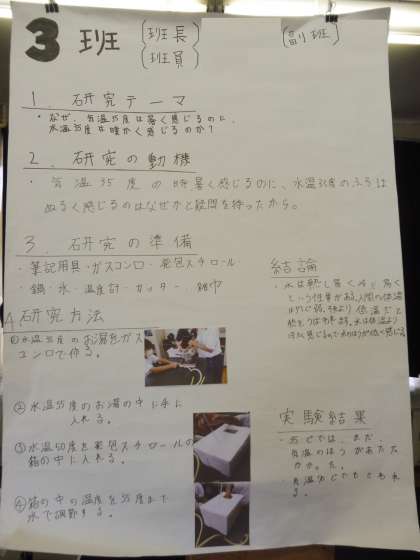 3班 {班長 班員} (副班)
1. 研究テーマ
・なぜ、気温35度は暑く感じるのに、
水温35度は暖かく感じるのか?
2. 研究の動機
・気温35度の時暑く感じるのに、水温35度のふろは
ぬるく感じるのはなぜかと疑問を持ったから。
3. 研究の準備
・筆記用具・ガスコンロ・発泡スチロール
・鍋・氷・温度計・カッター・雑巾
4. 研究方法
①水温35度のお湯をガス
コンロで作る。
②水温35度のお湯の中に手に
入れる。
③水温50度を発泡スチロールの
箱の中に入れる。
④箱の中の温度を35度まで
氷で調節する。
結論
・水は熱し易く冷め易く
という性質がある。人間の体温
実験結果
気温のほうがあたた
かかった。